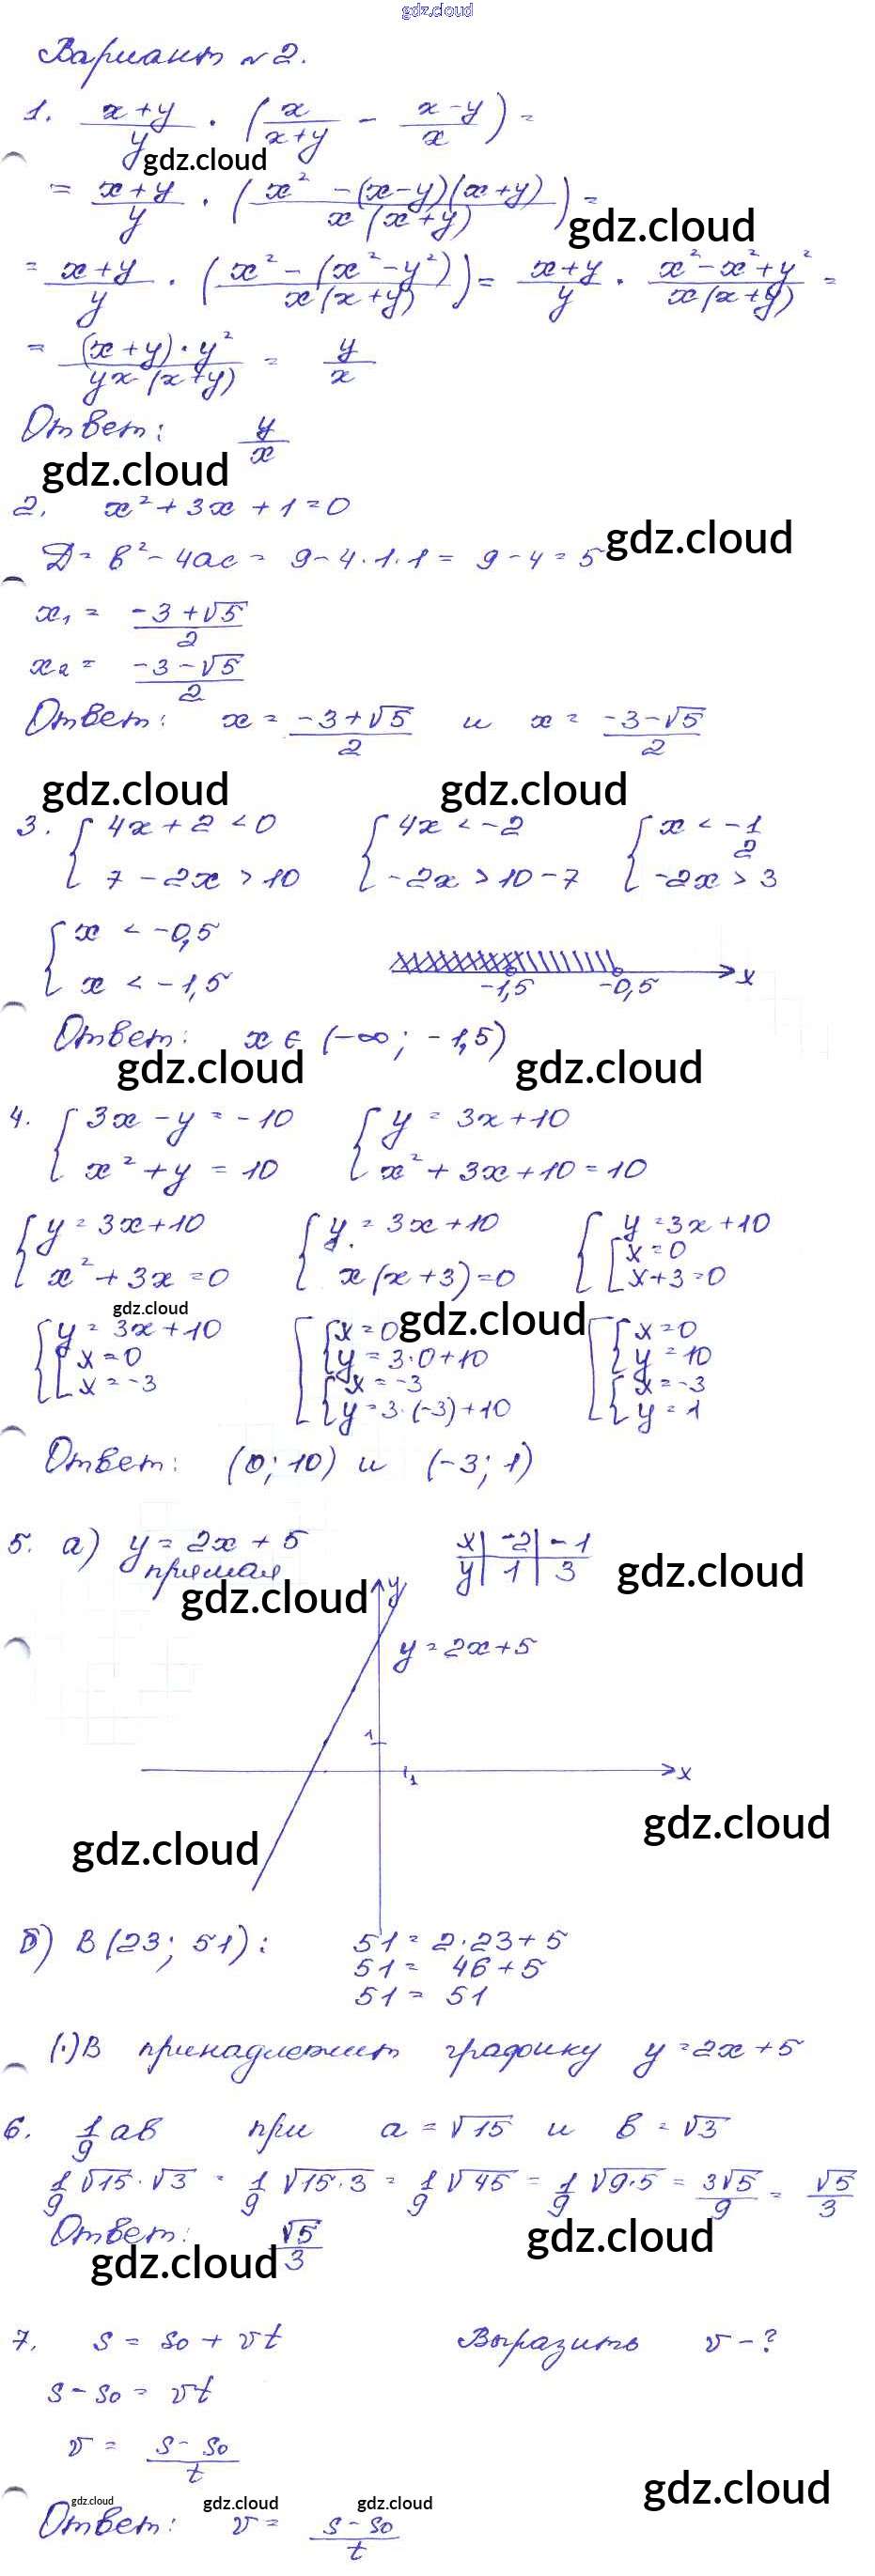 gdz.cloud
Вариант №2.
1. (x+y)/y · (x/(x+y) − (x−y)/x) =
gdz.cloud
= (x+y)/y · ((x² −(x−y)(x+y))/(x(x+y))) =
gdz.cloud
= (x+y)/y · ((x²−(x²−y²))/(x(x+y))) = (x+y)/y · (x²−x²+y²)/(x(x+y)) =
= ((x+y)·y²)/(yx·(x+y)) = y/x
Ответ: y/x
gdz.cloud
2. x²+3x+1=0
gdz.cloud
Д= b²−4ac= 9−4·1·1= 9−4=5
x₁ = (−3+√5)/2
x₂ = (−3−√5)/2
Ответ: x = (−3+√5)/2 и x = (−3−√5)/2
gdz.cloud gdz.cloud
3. { 4x+2<0 { 4x<−2 { x<−1/2
7−2x>10 −2x>10−7 −2x>3
{ x < −0,5
x < −1,5
−1,5 −0,5 x
Ответ: x ∈ (−∞; −1,5)
gdz.cloud gdz.cloud
4. { 3x−y=−10 { y=3x+10
x²+y=10 x²+3x+10=10
{ y=3x+10 { y=3x+10 { y=3x+10
x²+3x=0 x(x+3)=0 [ x=0
x+3=0
gdz.cloud gdz.cloud
{ y=3x+10 [ { x=0 [ { x=0
[ x=0 y=3·0+10 y=10
x=−3 { x=−3 { x=−3
y=3·(−3)+10 y=1
Ответ: (0; 10) и (−3; 1)
5. а) y=2x+5 x | −2 | −1
прямая y | 1 | 3
gdz.cloud gdz.cloud
y
y=2x+5
1
1 x
gdz.cloud gdz.cloud
б) B(23; 51): 51=2·23+5
51= 46+5
51= 51
(·)B принадлежит графику y=2x+5
6. 1/9 ab при a=√15 и b=√3
1/9 √15·√3 = 1/9 √15·3 = 1/9 √45 = 1/9 √9·5 = 3√5/9 = √5/3
Ответ: √5/3
gdz.cloud gdz.cloud
7. s = s₀ + vt Выразить v−?
s−s₀ = vt
v = (s−s₀)/t
gdz.cloud
gdz.cloud gdz.cloud gdz.cloud
Ответ: v= (s−s₀)/t